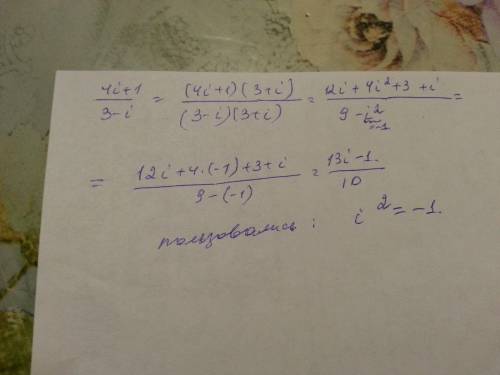 (4i+1)/(3-i) = ((4i+1)(3+i))/((3-i)(3+i)) = (12i+4i²+3+i)/(9-i²) =
=-1
= (12i+4·(-1)+3+i)/(9-(-1)) = (13i-1)/10
пользовались: i² = -1.